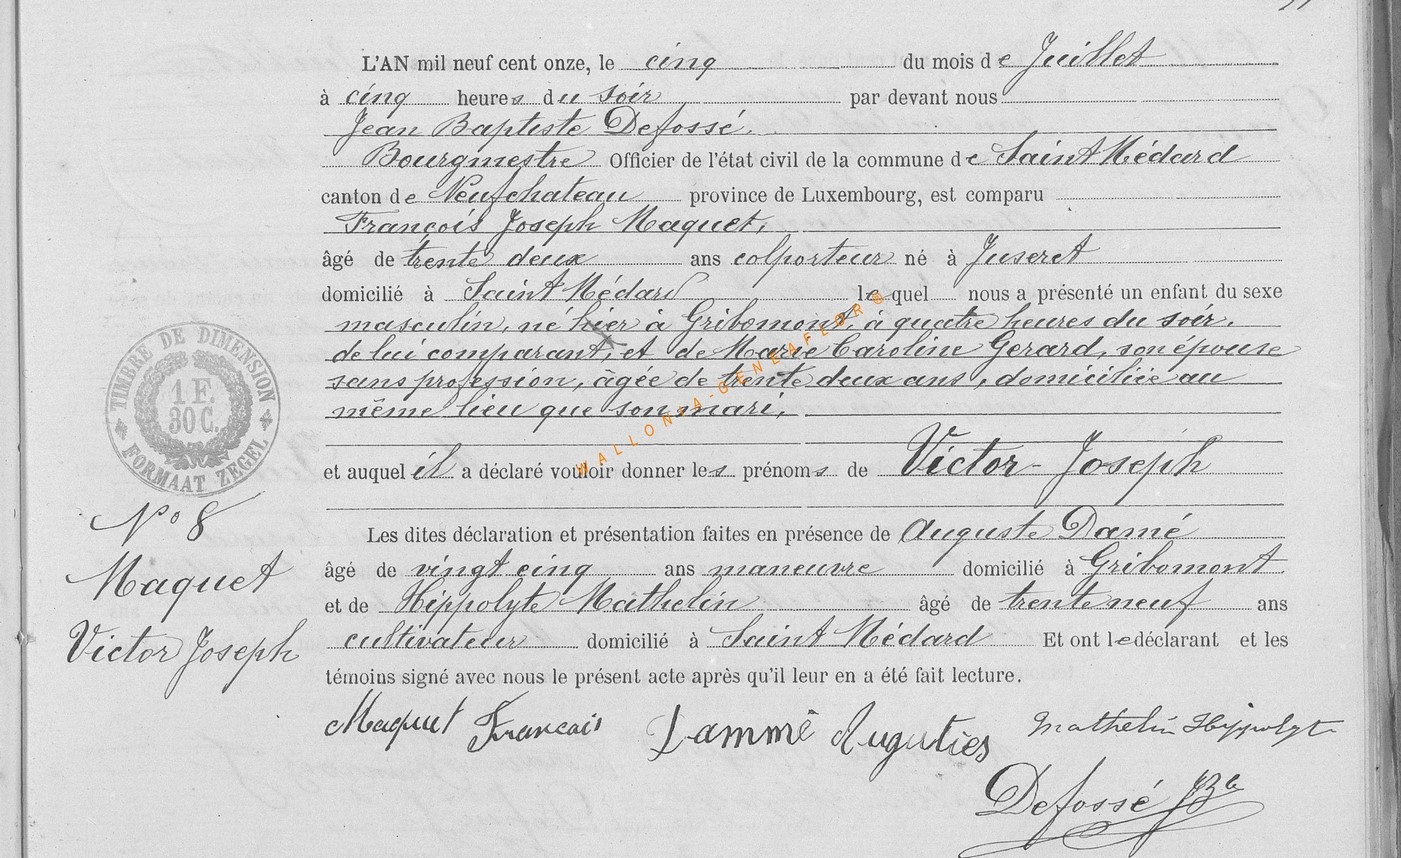 L'AN mil neuf cent onze, le cinq du mois de Juillet
à cinq heures du soir par devant nous
Jean Baptiste Defossé.
Bourgmestre Officier de l'état civil de la commune de Saint Médard
canton de Neufchateau province de Luxembourg, est comparu
François Joseph Maquet,
âgé de trente deux ans colporteur né à Juseret
domicilié à Saint Médard lequel nous a présenté un enfant du sexe
masculin, né hier à Gribomont, à quatre heures du soir,
de lui comparant, et de Marie Caroline Gerard, son épouse
sans profession, âgée de trente deux ans, domiciliée au
même lieu que son mari,
WALLONIA-GENEAFLOR©
TIMBRE DE DIMENSION
1 F.
30 C.
FORMAAT ZEGEL
et auquel il a déclaré vouloir donner les prénoms de Victor-Joseph
Les dites déclaration et présentation faites en présence de Auguste Damé
N° 8
Maquet
Victor Joseph
âgé de vingt cinq ans maneuvre domicilié à Gribomont
et de Hippolyte Mathelin âgé de trente neuf ans
cultivateur domicilié à Saint Médard Et ont le déclarant et les
témoins signé avec nous le présent acte après qu'il leur en a été fait lecture.
Maquet Francois Dammé Mathelin Hippolyt
Defossé JBte